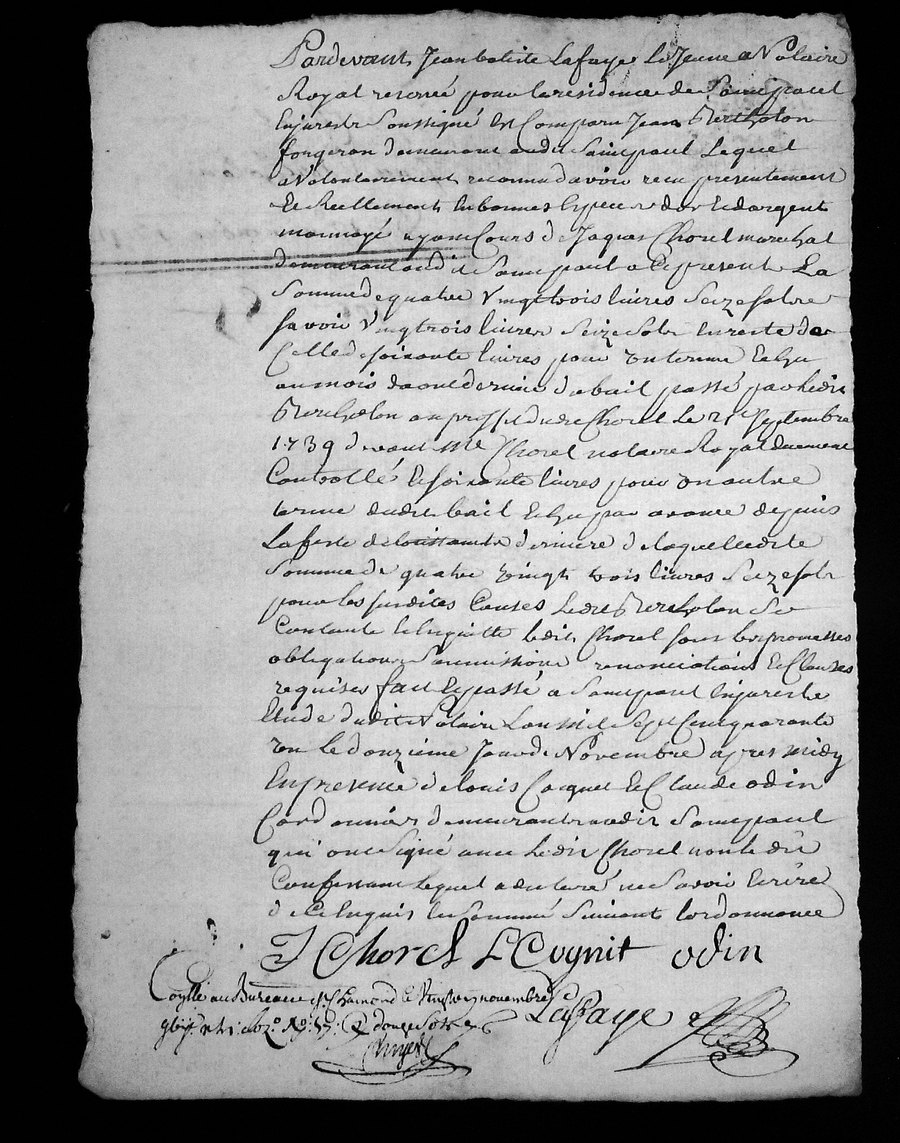 Pardevant Jean batiste Lafaye Le Jeune Notaire
Royal reservé pour la residence de Saint paul
En jarest Soussigné Est Comparu Jean Bertholon
forgeron demeurant audit Saint paul Lequel
a Volontairement reconnu davoir receu presentement
Et Reellement En bonnes Espece dor Et dargent
monnoyé ayant Cours de Jaques Chorel marechal
demeurant audit Saint paul a Ce present La
Somme de quatre Vingt trois livres Seize sols
Savoir Vingt trois livres Seize Sols En reste de
Celle de soixante livres pour un terme Echu
au mois daout dernier du bail passé par ledit
Bertholon au proffit dudit Chorel Le 21e Septembre
1739 devant Me Chorel notaire Royal duement
Controllé Et soixante livres pour un autre
terme dudit bail Echu par avance depuis
La feste de toussaints derniere de laquelle dite
Somme de quatre vingt trois livres Seize sols
pour les susdites Causes Ledit Bertholon Se
Contante Et Enquitte ledit Chorel sous les promesses
obligations Soumissions renonciations Et Clauses
requises fait Et passé a Saint paul En jarest
Etude dudit Notaire Lan mil Sept Cent quarante
un Le douzieme Jour de Novembre apres midy
En presence de Louis Coignet Et Claude odin
Cordonnier demeurants audit Saint paul
qui ont Signé avec Ledit Chorel non Le dit
Confessant Lequel a declaré ne Savoir Ecrire
de Ce Enquis Et Sommé Suivant Lordonnance
J Chorel L Cognit odin
Conllé au Bureau de St Chamond le Vingt novembre
douze Sols
Laffaye